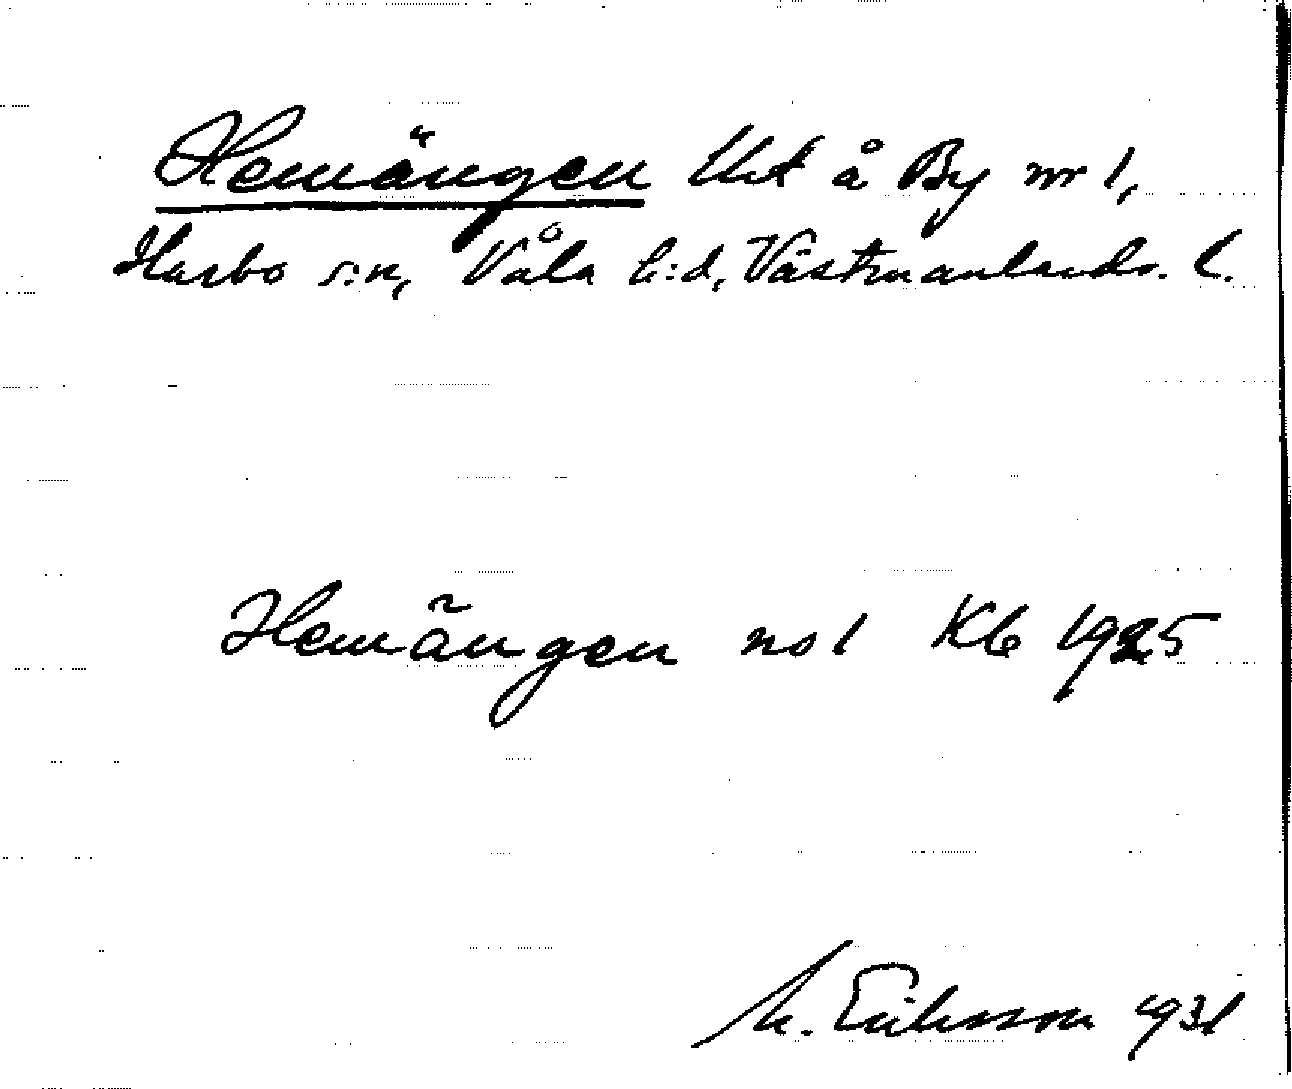 Hemängen Urt å By nr 1,
Harbo s:n, Våla h:d, Västmanlands. l.
Hemängen no 1 Kb 1925
M. Eriksson 1931